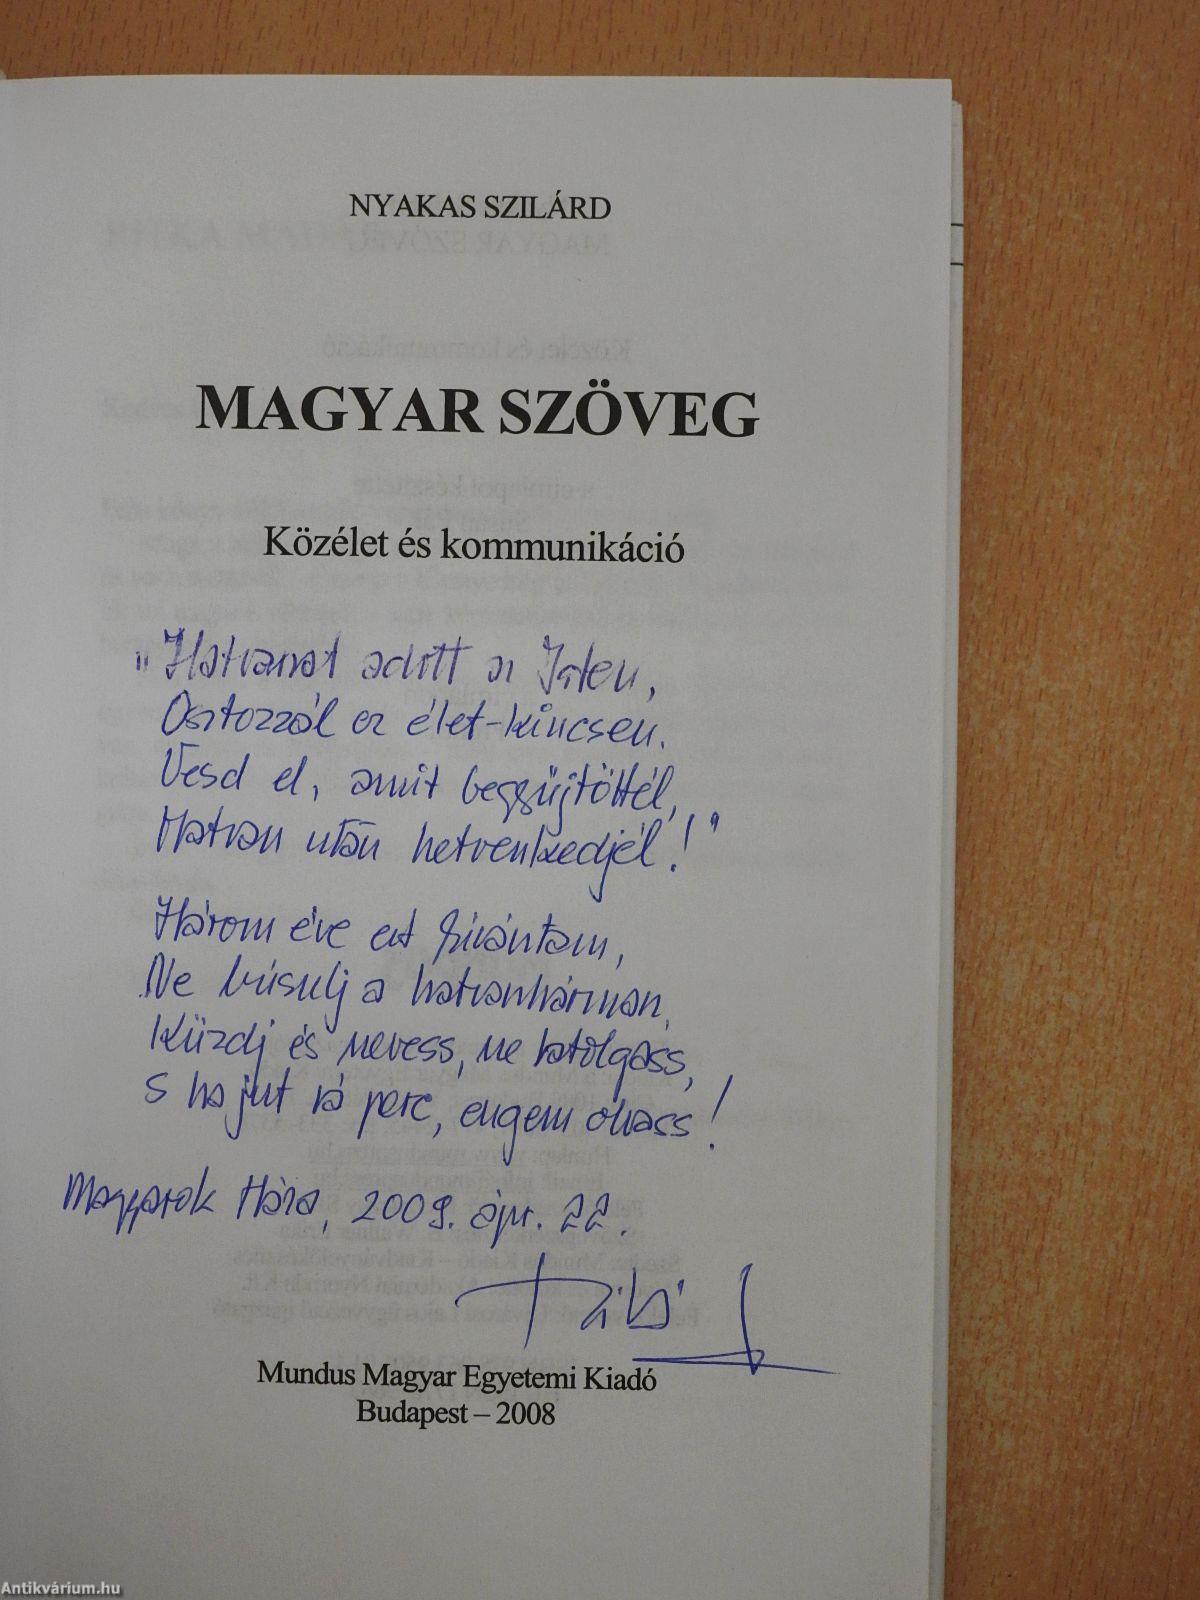 NYAKAS SZILÁRD
MAGYAR SZÖVEG
Közélet és kommunikáció
"Hatvanat adott az Isten,
Osztozzál ez élet-kincsen.
Vesd el, amit begyűjtöttél,
Hatvan után hetvenkedjél!"
Három éve ezt kívántam,
Ne búsulj a hatvanhárman,
Küzdj és nevess, ne latolgass,
S ha jut rá perc, engem olvass!
Magyarok Háza, 2009. ápr. 22.
Mundus Magyar Egyetemi Kiadó
Budapest – 2008
Antikvárium.hu